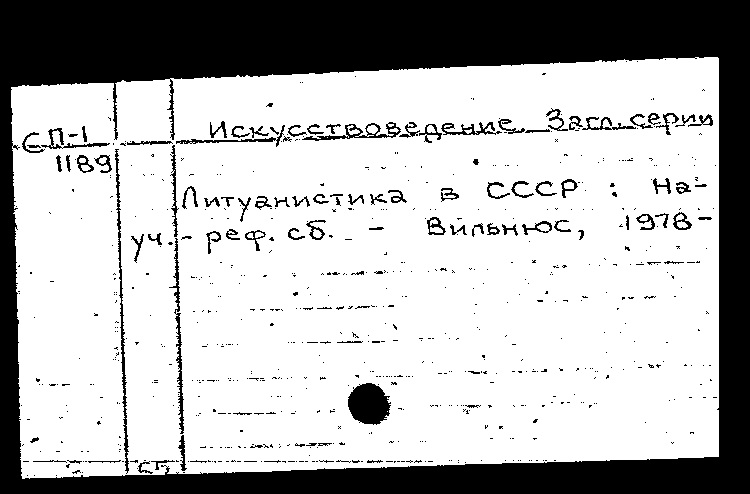 СП-1
1189
Искусствоведение. Загл. серии
Литуанистика в СССР : На-
уч.-реф. сб. - Вильнюс, 1978-